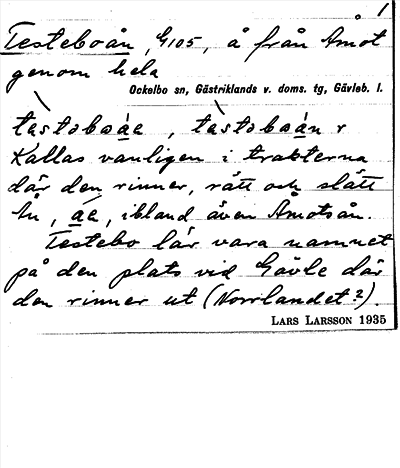 1
Testeboån, G105, å från Åmot
genom hela
Ockelbo sn, Gästriklands v. doms. tg, Gävleb. l.
tàstəboáa, tàstəboán r
Kallas vanligen i trakterna
där den rinner, rätt och slätt
ån, áa, ibland även Åmotsån.
Testebo lär vara namnet
på den plats vid Gävle där
den rinner ut (Norrlandet?).
LARS LARSSON 1935